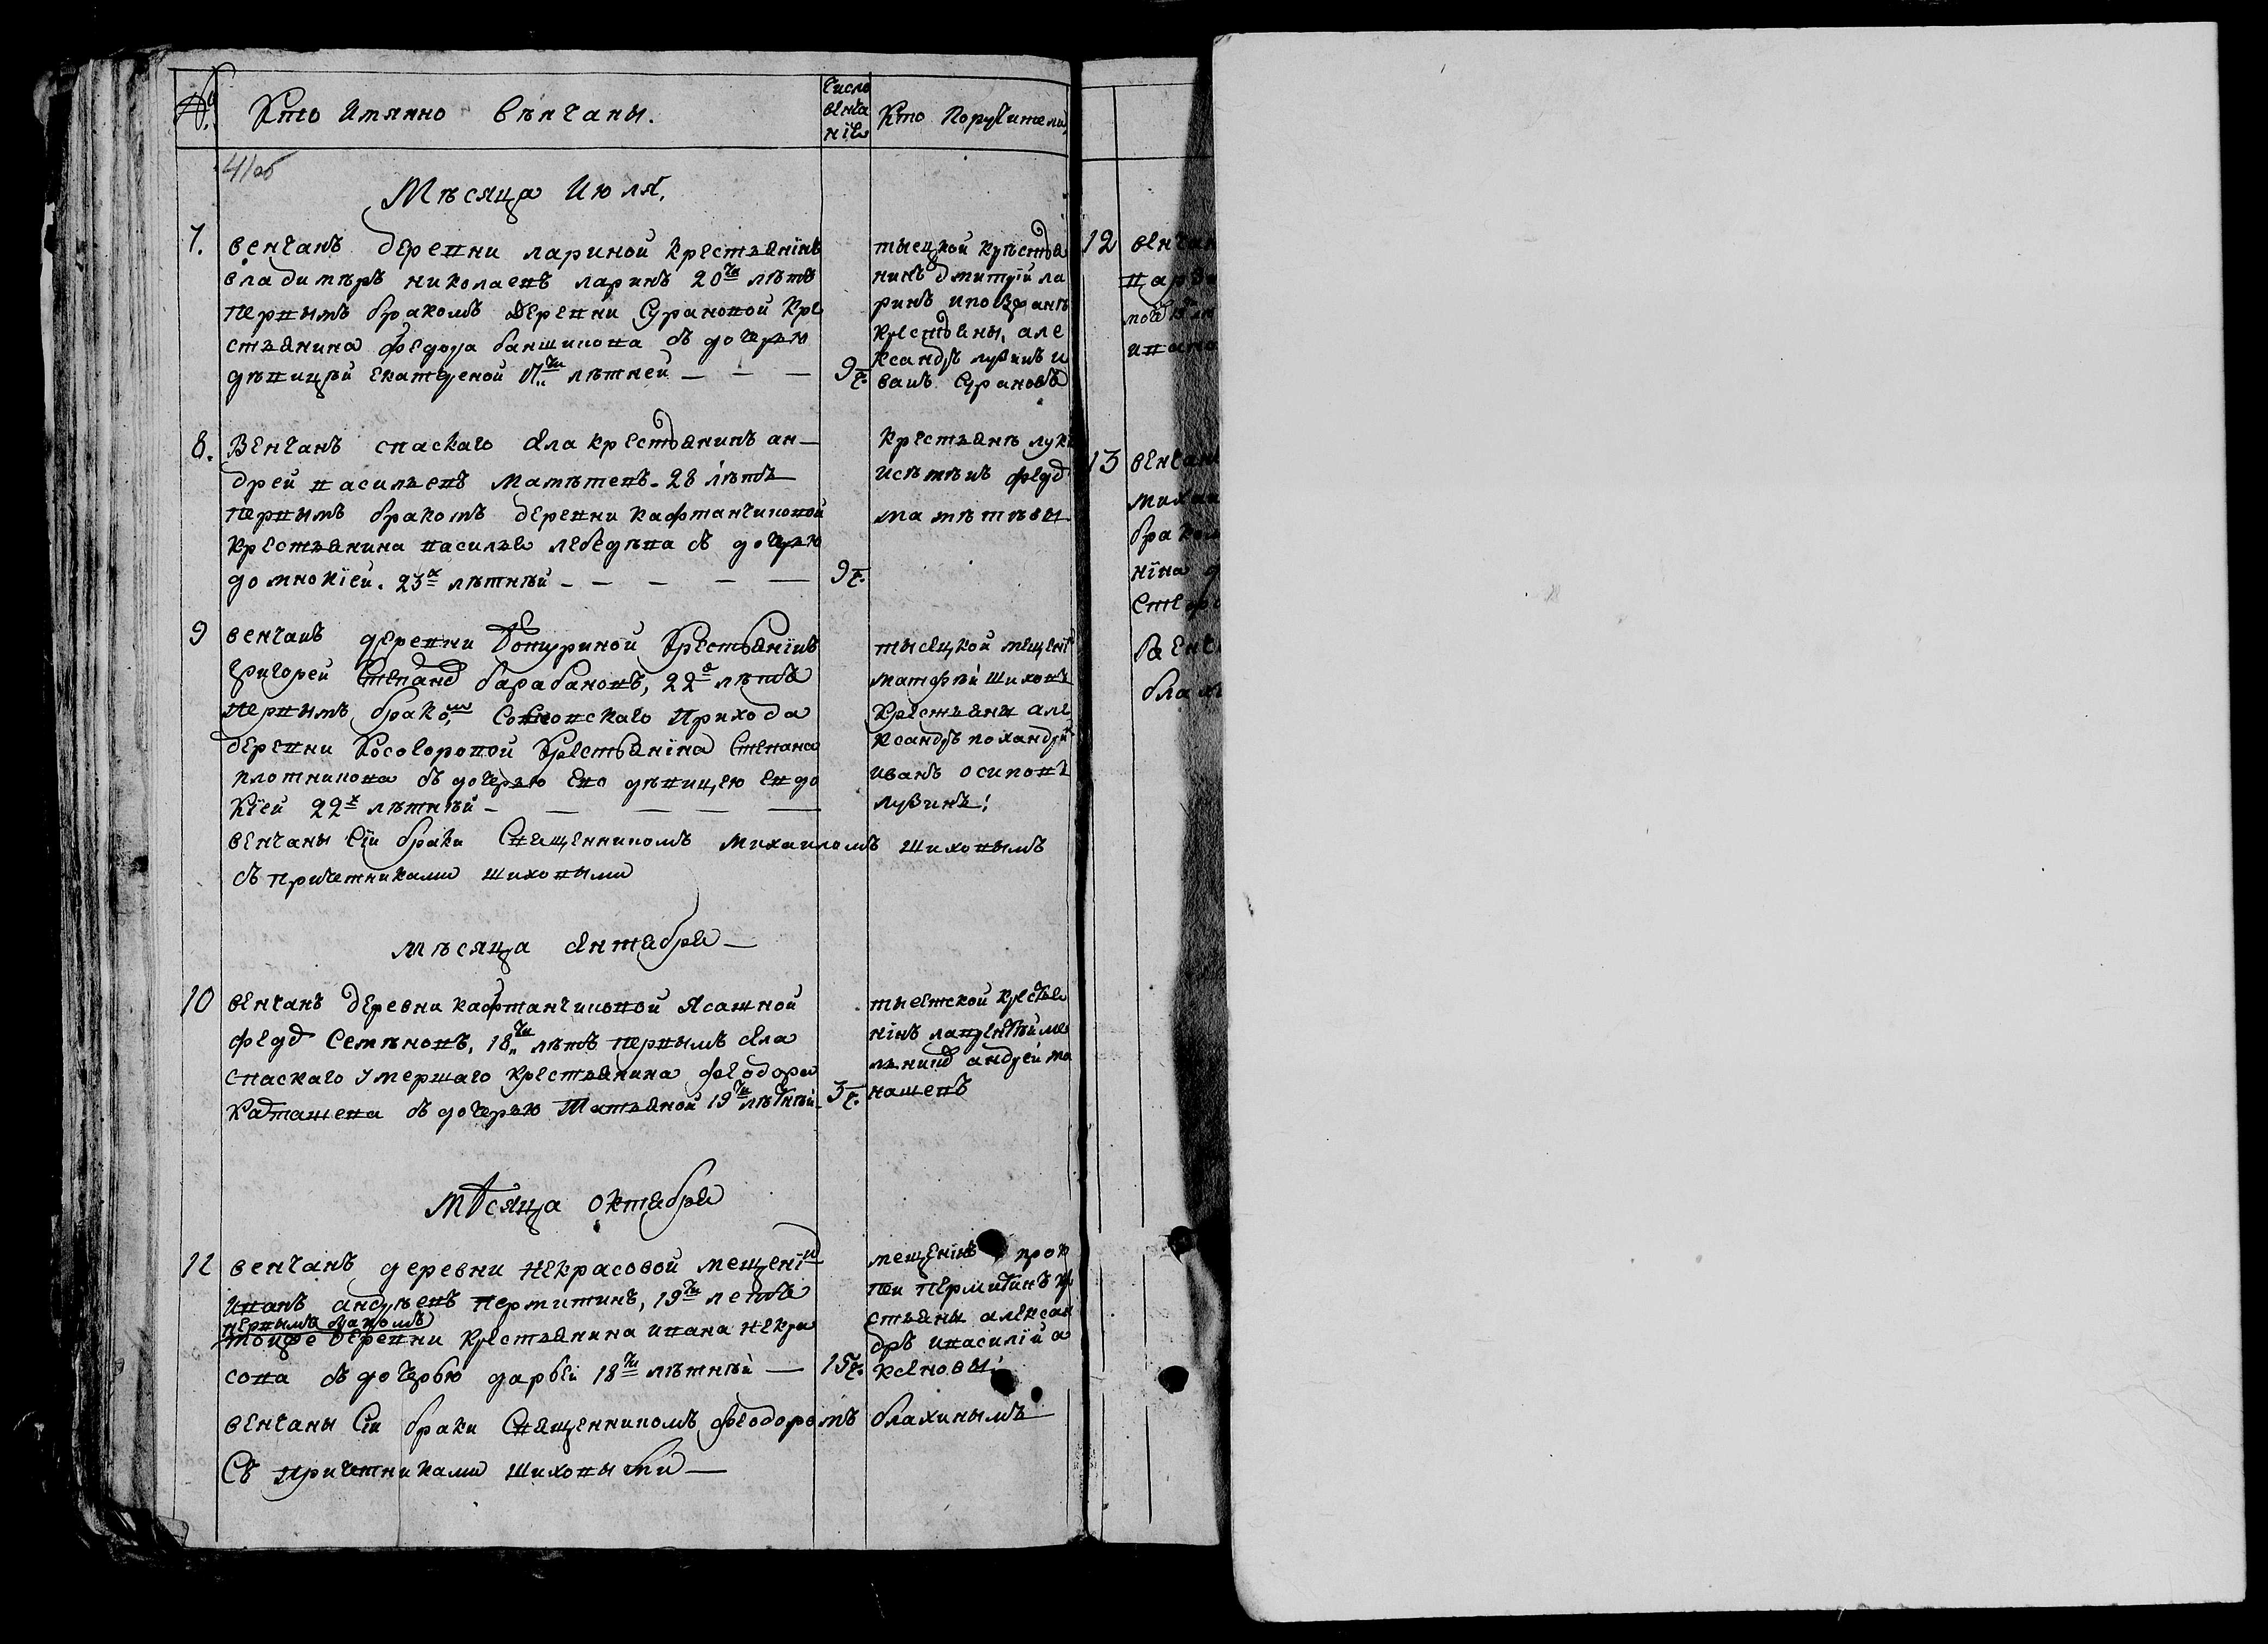 №
Кто Имянно Вѣнчаны.
Число
венча
нїя
Кто Поручители
41об
Мѣсяца Июля.
7. венчанъ деревни лариной крестьянїнъ
владимѣръ николаевъ ларинъ 20ти лѣтъ
первымъ бракомъ деревни Сурановой Кре
стьянина федора банщикова съ дочерью
дѣвицъй Екатереной 17ти лѣтней — — — 9 ч.
тысецкой крѣстья
нинъ дмитрїй ла
ринъ
крестьяны, але
ксандръ лузинъ и
ванъ Сурановъ
8. Венчанъ спаскаго села крестьянинъ ан-
дрей васильевъ Маметевъ. 28 лѣтъ
первымъ бракомъ деревни кафтанчиковой
крестьянина василья лебедѣва съ дочерью
домнокїей. 23х лѣтнъй — — — — — 9 ч.
крестьянъ
федор
маметѣвы
9 венчанъ деревни Ботуриной Крестьянїнъ
Григорей Степанов барабановъ, 22х лѣтъ
первымъ браком, прихода
деревни Косогоровой Крестьянїна Степана
плотникова съ дочерью Ево дѣвицею Евдо
кїей 22х лѣтнъй — — — — —
тысецкой мещенїн
матфъй шиховъ
Крестьяны але
ксандръ
иванъ осиповъ
лузинъ.
венчаны Сїи браки Священникомъ михаиломъ шиховымъ
съ причетниками шиховыми
мѣсяца сентября —
10 венчанъ деревни кафтанчиковой Ясашной
федор Семѣновъ, 18ти лѣтъ первымъ села
спаскаго умершаго крестьянина феодора
Каташева съ дочерью Татьяной 19ти лѣтнъй 3 ч.
тысетской крестья
нїнъ лаврентъй ме
льников андрей ма
нашевъ
мѣсяца октября
11 венчанъ деревни некрасовой мещенїн
Иванъ андрѣевъ пермитинъ, 19ти летъ
первымъ бракомъ
тойже деревни крестьянина ивана некра
сова съ дочерью дарьей 18ти лѣтнъй — 15 ч.
мещенїнъ проко
пеи пермитинъ кре
стьяны алексан
дръ ивасилїй а
ксеновы
венчаны Сїи браки Священникомъ феодоромъ блахинымъ
Съ причетниками шиховыми —
12 венчан
13 венчанъ
михаи
брако
нїна д
Степа
Венч
блах